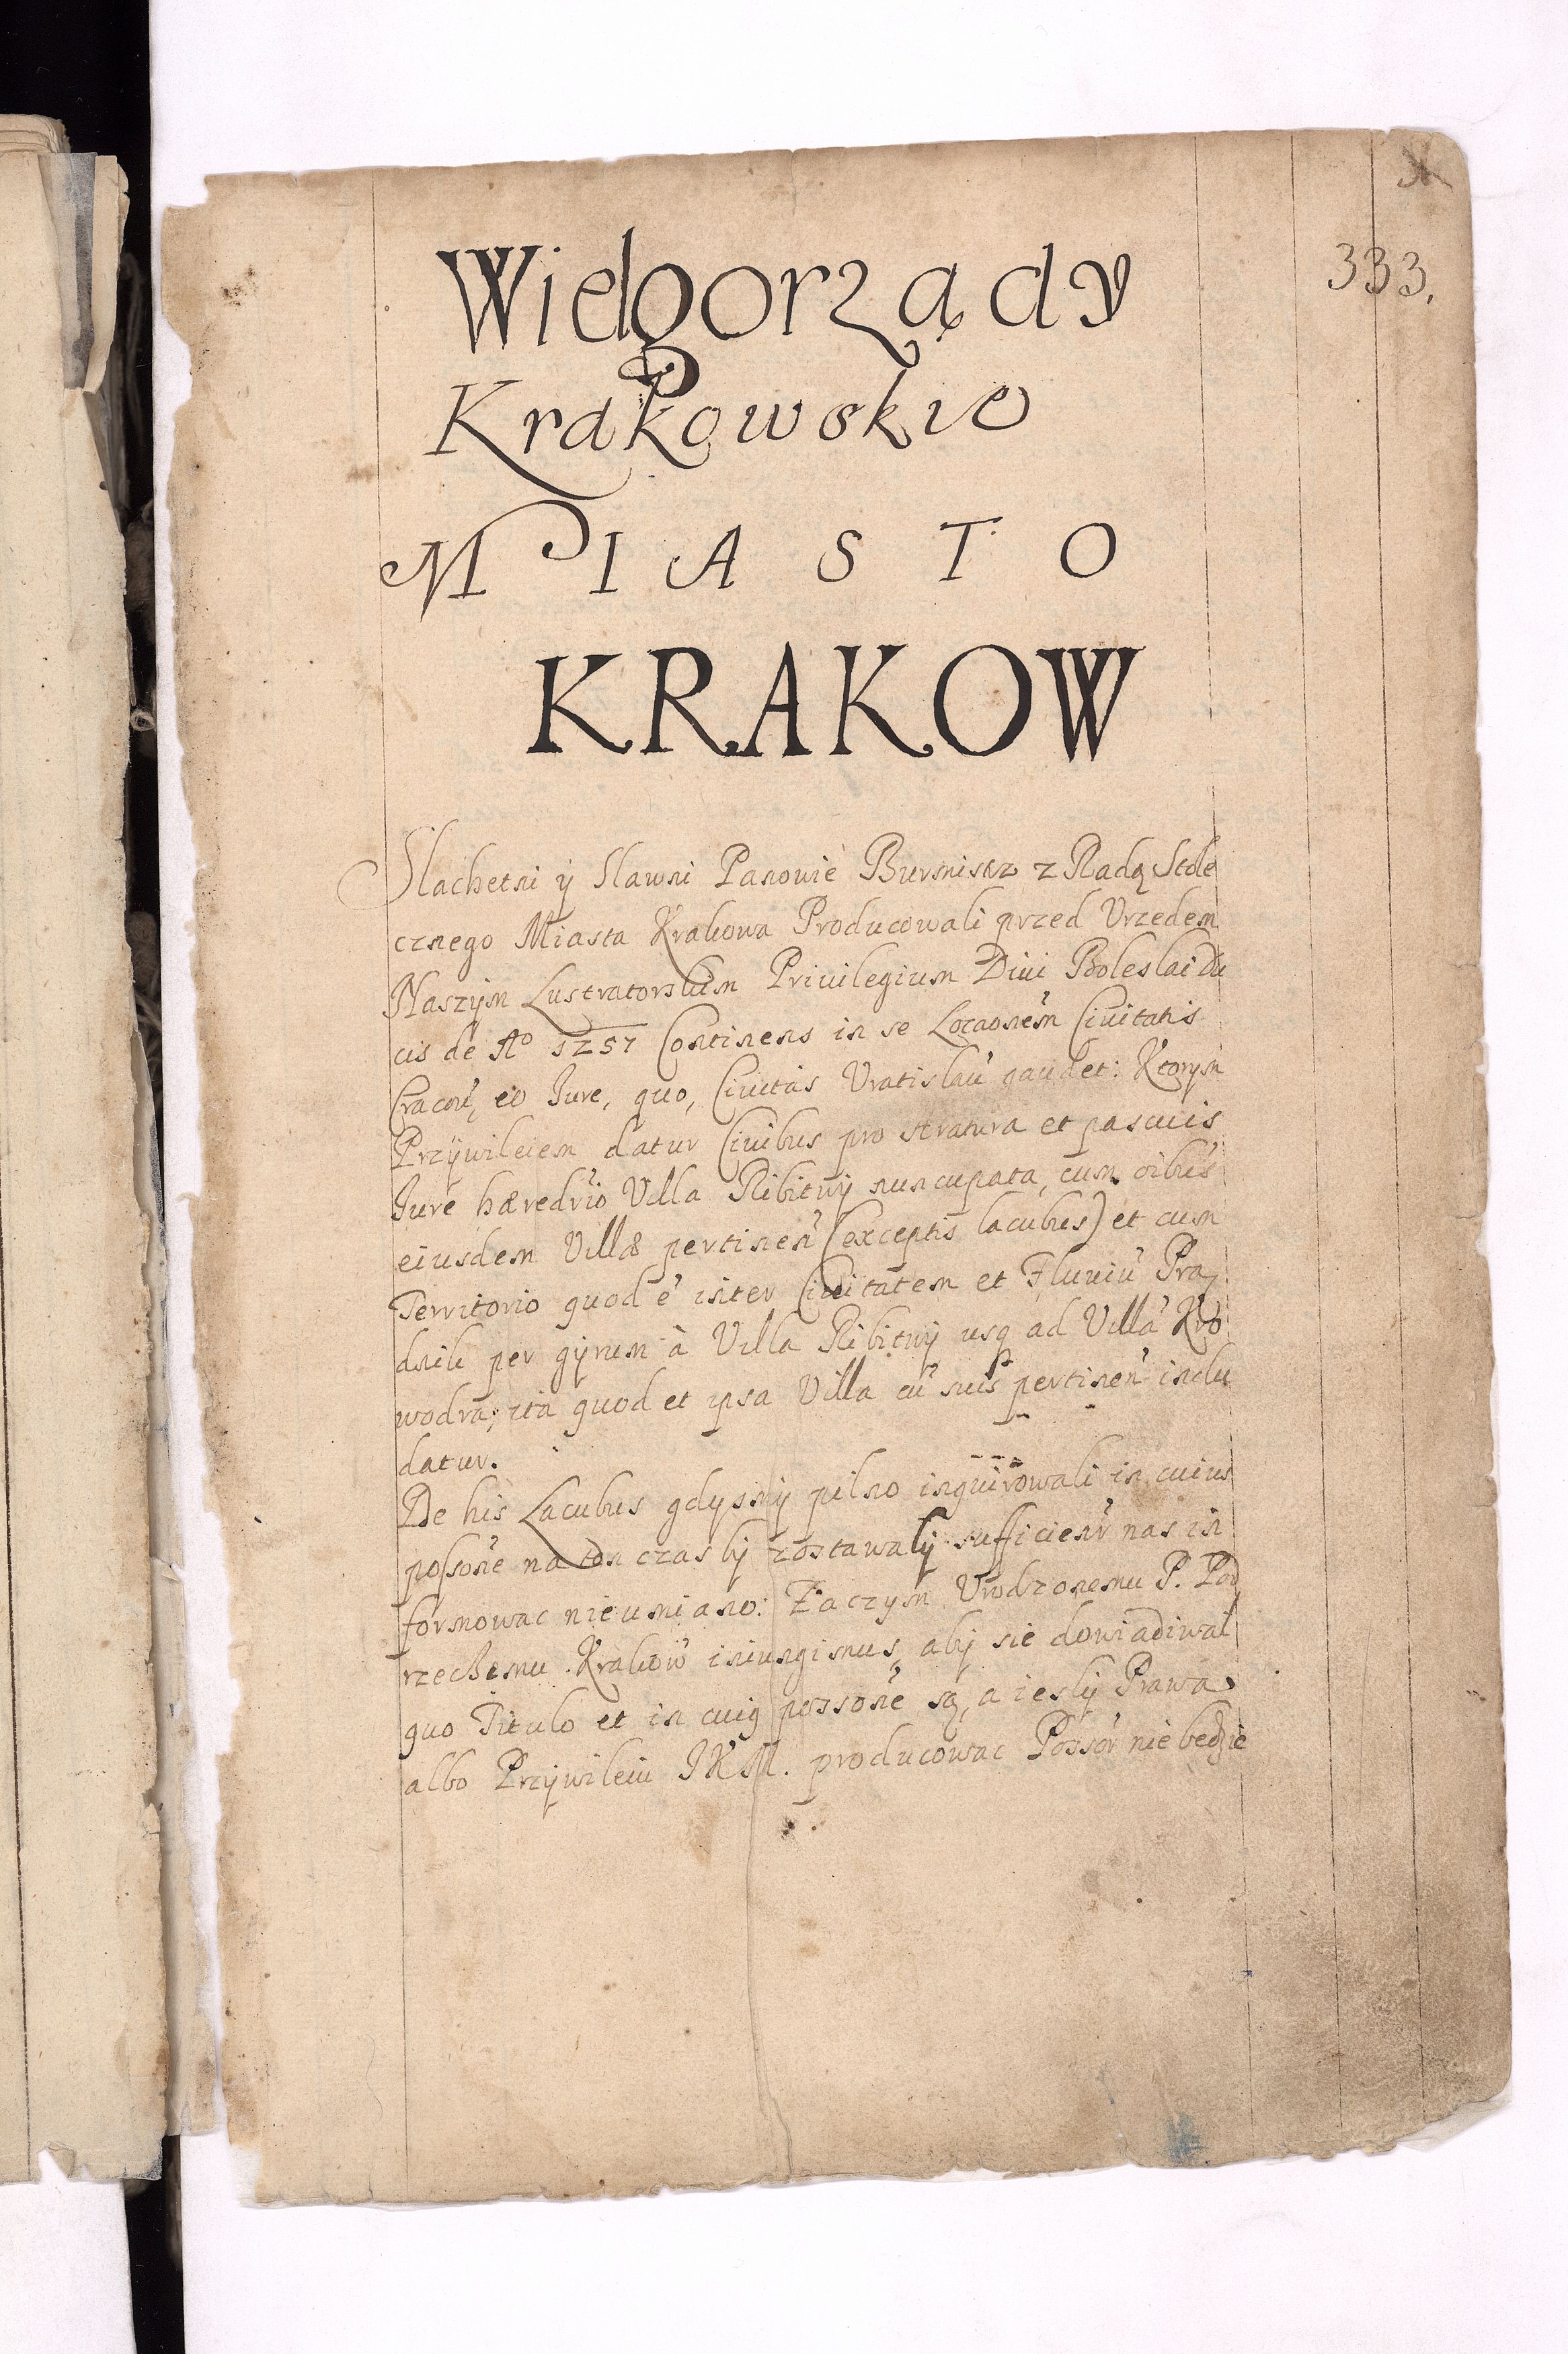 333.
Wielgorządy
Krakowskie
MIASTO
KRAKOW
Slachetni ÿ Slawni Panowie Burmistrz z Radą Stole
cznego Miasta Krakowa Producowali przed Vrzedem
Naszÿm Lustratorskim Priuilegium Diui Boleslai Du
cis de Aº 1257 Continens in se Locaonem Ciuitatis
Cracou, eo Jure, quo, Ciuitas Vratislau gaudet: Ktorym
Przÿwileiem datur Ciuibus pro stratura et pascuis
Jure hæredrio Villa Ribitwÿ nuncupata, cum oibus
eiusdem Villæ pertinen (exceptis lacubus) et cum
Territorio quod e inter Ciuitatem et Fluuiu Prą
dnik per gÿrum à Villa Ribitwÿ usq ad Villa Kro
wodra; ita quod et ipsa Villa cu suis pertinen inclu
datur.
De his Lacubus gdysmÿ pilno inquirowali in cuius
possone na ton czas lÿ zostawalÿ sufficienr nas in
formowac nie umiano: Zaczym Vrodzonemu P. Pod
rzeckemu Krakow iniungimus, abÿ sie dowiadiwal
quo Titulo et in cuiq possone są, a ieslÿ Prawa
albo Przÿwileiu JKM. producowac Possor nie bedzie